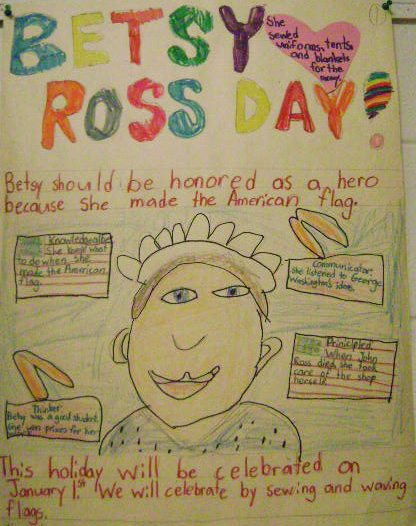 BETSY
ROSS DAY!
She
sewed
uniforms, tents
and blankets
for the
army.
Betsy should be honored as a hero
because she made the American flag.
Knowledgable
She knew what
to do when she
made the American
flag.
Communicator
She listened to George
Washington's ideas.
Thinker
Betsy was a good student.
She won prizes for her
Principled
When John
Ross died she took
care of the shop
herself.
This holiday will be celebrated on
January 1.st We will celebrate by sewing and waving
flags.